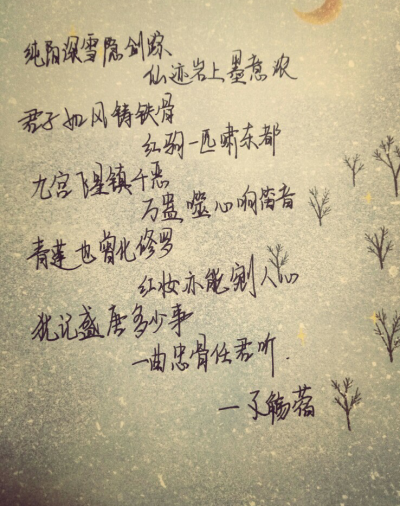 纯阳深雪隐剑踪
仙迹岩上墨意浓
君子如风铸铁骨
红驹一匹啸东都
九宫飞星镇千恶
万蛊噬心响笛音
青莲也曾化修罗
红妆亦能剜人心
犹记盛唐多少事
一曲忠骨任君听.
—子觞蓿